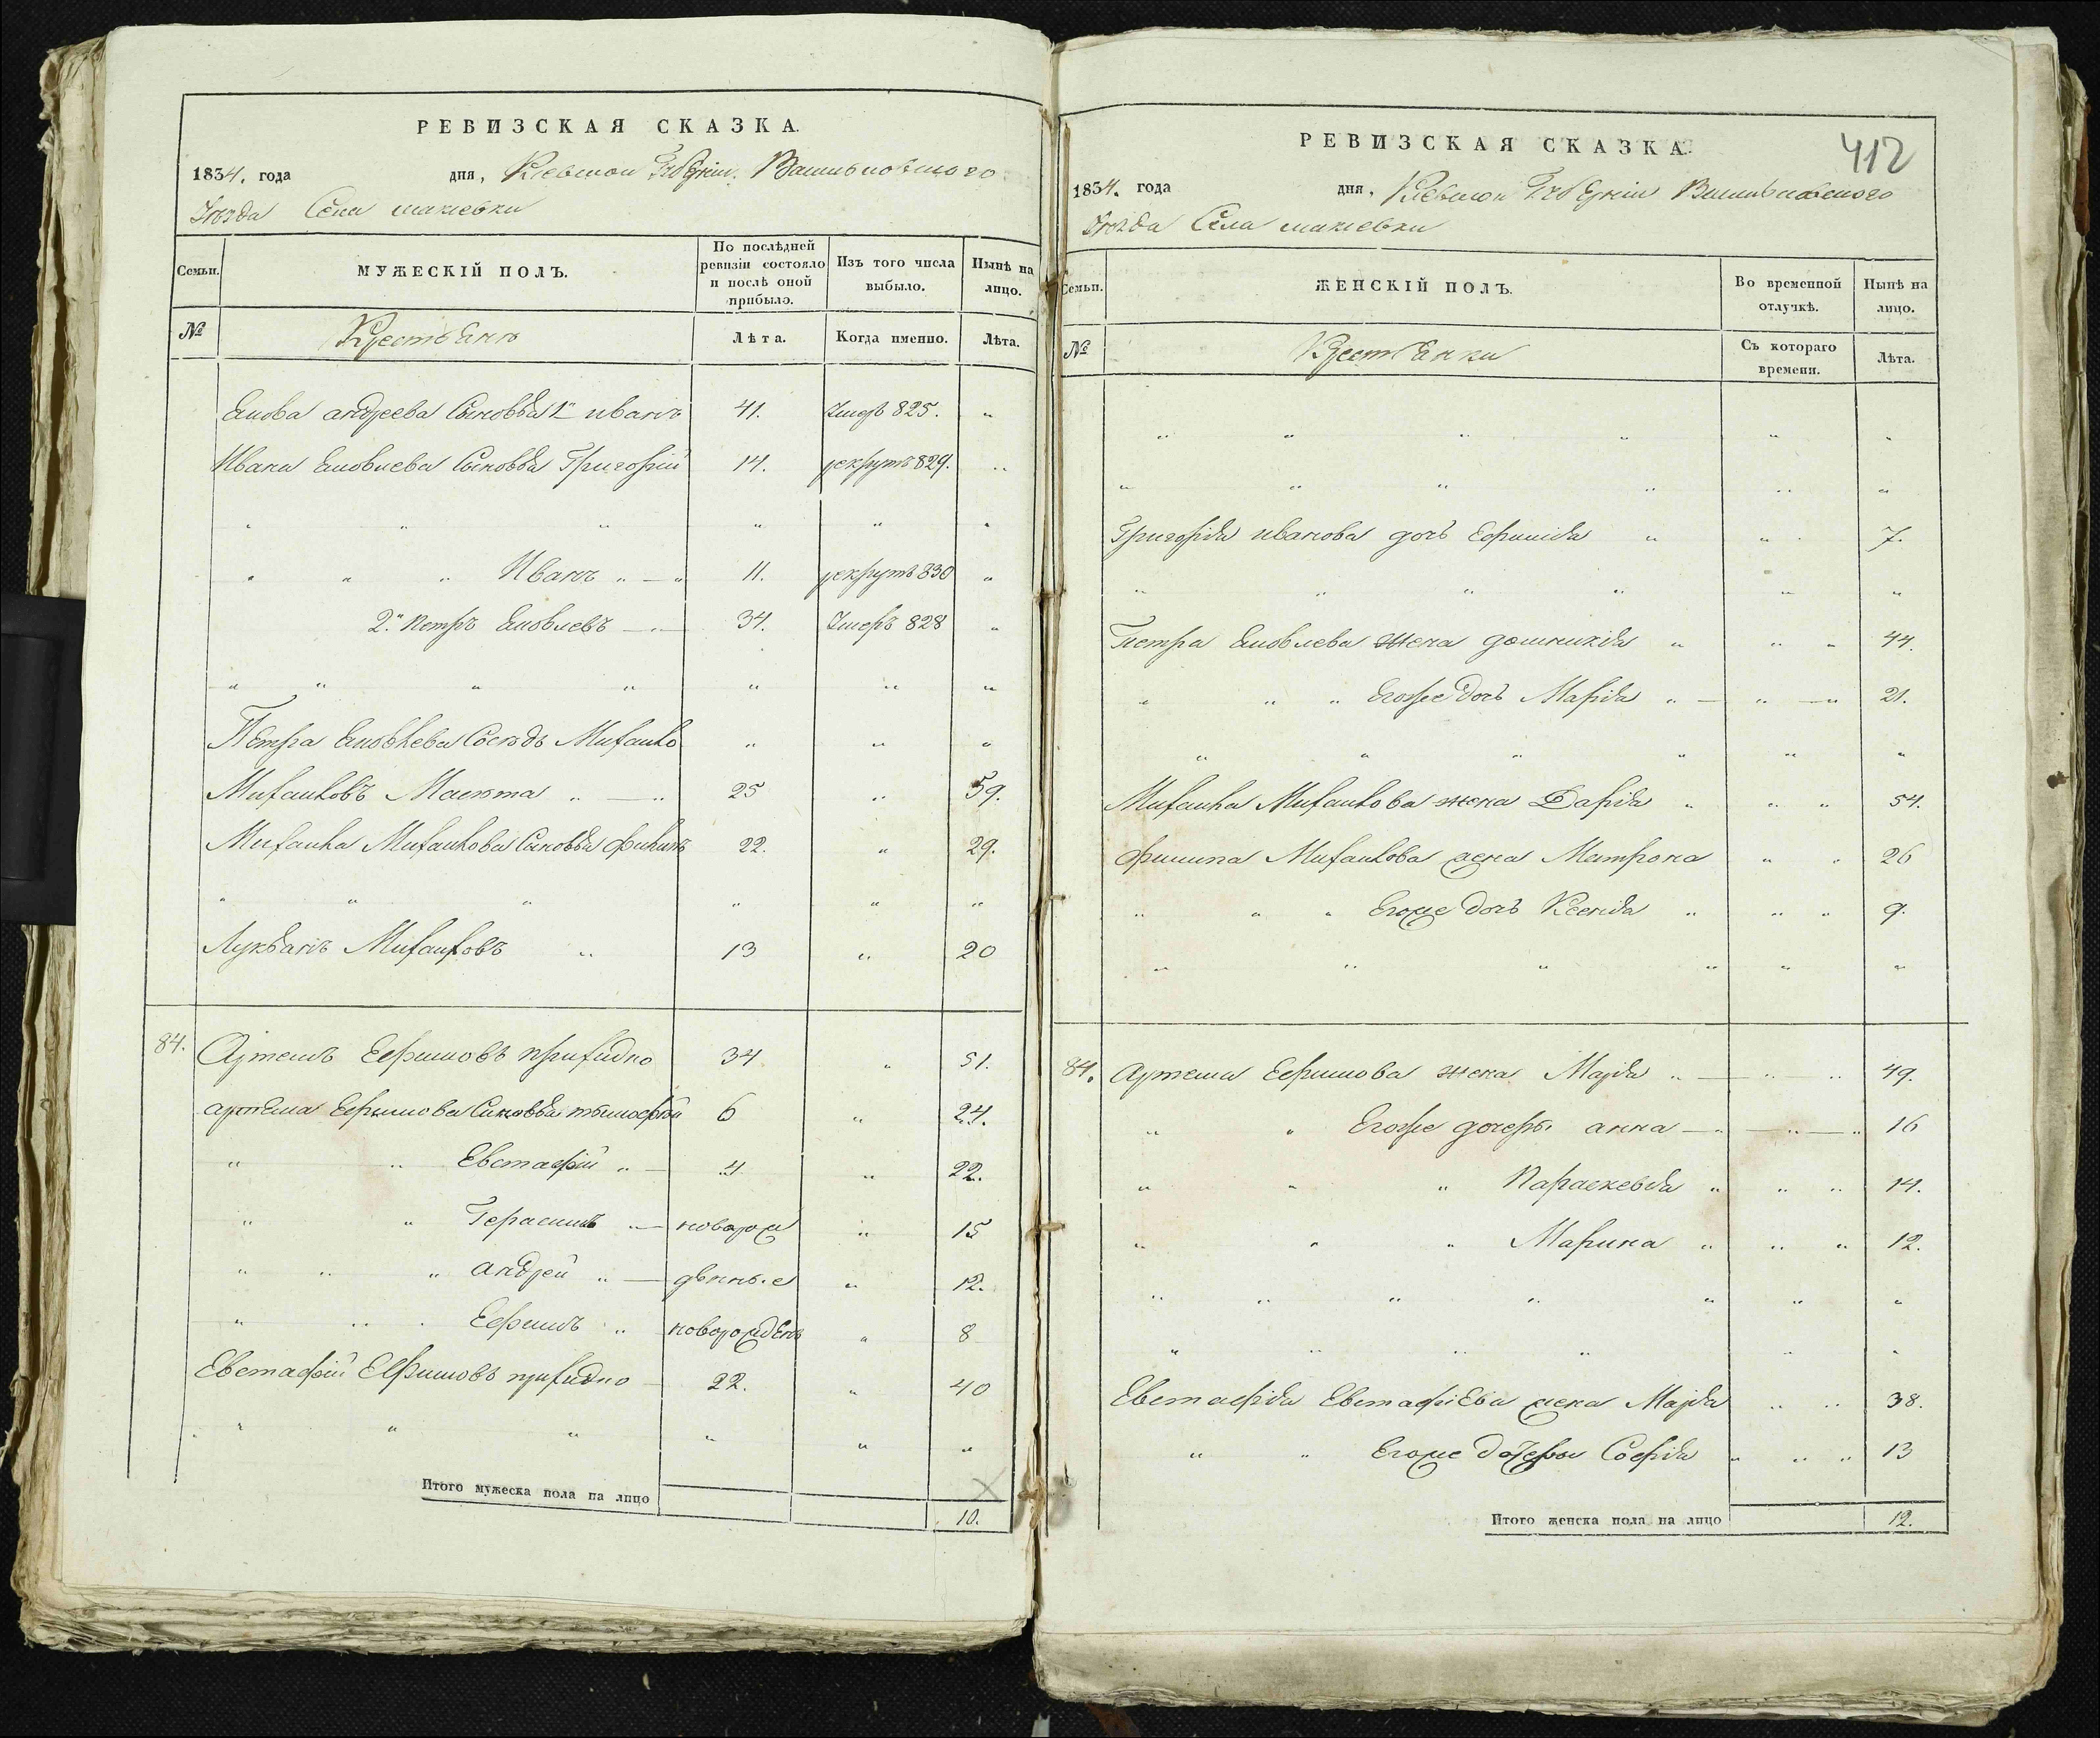 РЕВИЗСКАЯ СКАЗКА.
1834. года дня, Кіевской Губерніи Васильковского
Уезда Села макіевки
Семьи. МУЖЕСКІЙ ПОЛЪ. По послѣдней ревизіи состояло и послѣ оной прибыло. Изъ того числа выбыло. Нынѣ на лицо.
№ Крестьянъ Лѣта. Когда именно. Лѣта.
Якова андреева Сыновья 1й иванъ 41. Умеръ 825. „
Ивана Яковлева Сыновья Григорій 14. рекрутъ 829. „
„ „ „ „ „ „
„ „ „ Иванъ „ — „ 11. рекрутъ 830 „
2й петръ Яковлевъ — „ — 34. Умеръ 828 „
„ „ „ „ „ „ „
Петра Яковлева Соседъ Михайло „ „ „
Михайловъ „ — „ 25 „ 59.
Михайла Михайлова Сыновья филипъ 22. „ 29.
„ „ „ „ „ „
Лукьянъ Михайловъ „ 13 „ 20
84. Артемъ Ефимовъ прихидко 34 „ 51.
артема Ефимова Сыновья тимофей 6 „ 24.
„ „ Евстафій „ — 4 „ 22.
„ „ Герасимъ „ — новорож „ 15
„ „ „ андрей „ — денные „ 12.
„ „ „ Ефимъ „ новорожденъ „ 8
Евстафій Ефимовъ прихидко 22. „ 40
„ „ „ „ „ „ „
Итого мужеска пола на лицо 10.
412
РЕВИЗСКАЯ СКАЗКА.
1834. года дня, Кіевской Губерніи Васильковского
Уезда Села макіевки
Семьи. ЖЕНСКІЙ ПОЛЪ. Во временной отлучкѣ. Нынѣ на лицо.
№ Крестьянки Съ котораго времени. Лѣта.
„ „ „ „ „ „
„ „ „ „ „ „
Григорія иванова дочь Ефимія „ „ „ 7.
„ „ „ „ „ „
Петра Яковлева жена домникія „ „ „ 44.
„ „ „ Егоже дочь Марія „ — „ — „ 21.
„ „ „ „ „ „
Михайла Михайлова жена Дарія „ „ „ 54.
филипа Михайлова жена Матрона „ „ 26
„ „ „ Егоже дочь Ксенія „ „ „ 9.
„ „ „ „ „ „
84. артема Ефимова жена Марія „ — „ „ 49.
„ „ Егоже дочери анна — „ — „ — „ 16
„ „ „ Параскевія „ „ „ 14.
„ „ „ Марина „ „ „ 12.
„ „ „ „ „ „ „
„ „ „ „ „ „
Евстафія Евстафіева жена Марія „ „ 38.
„ „ Егоже дочери Софія „ „ „ 13
Итого женска пола на лицо 12.